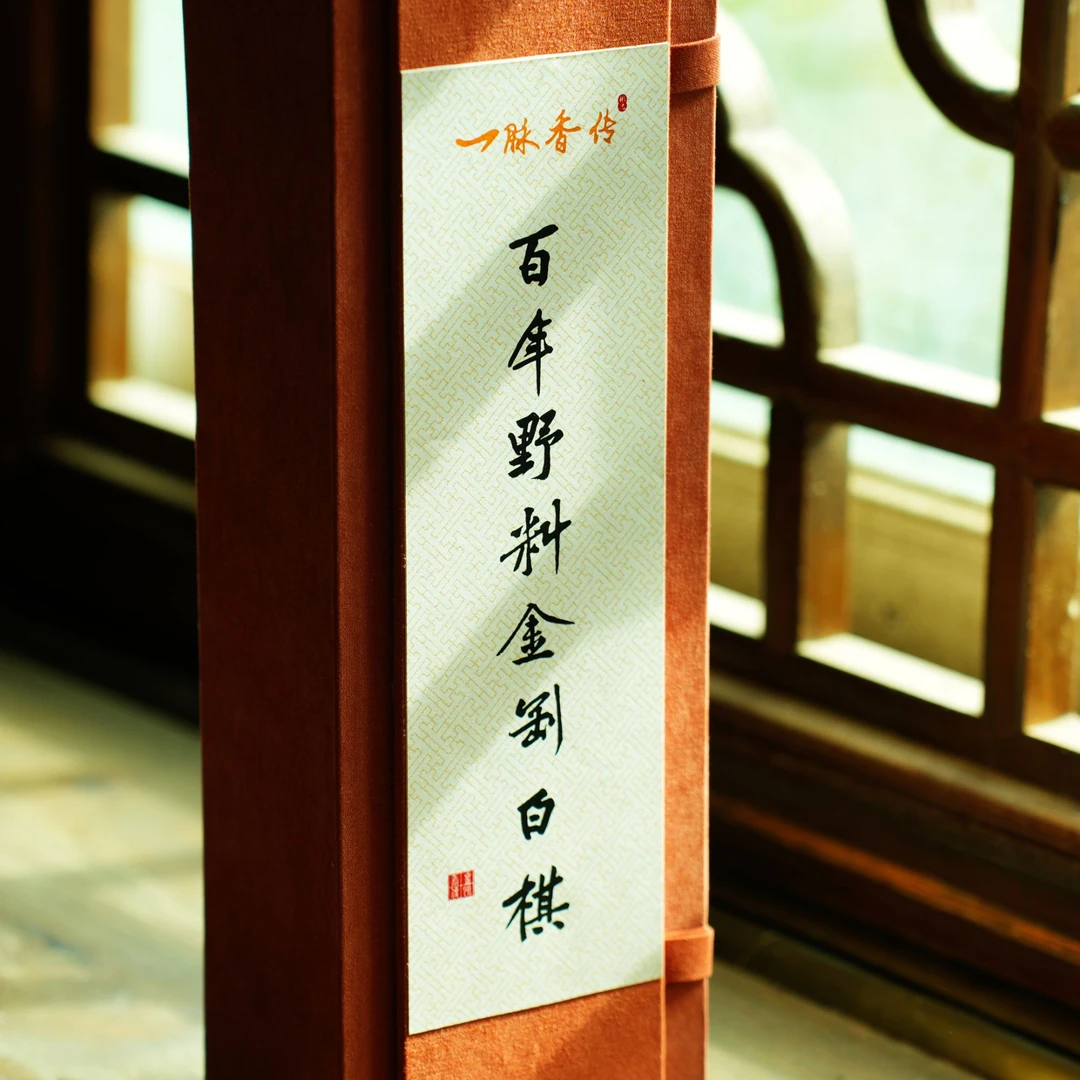 一脉香传
百年野料金剛白棋